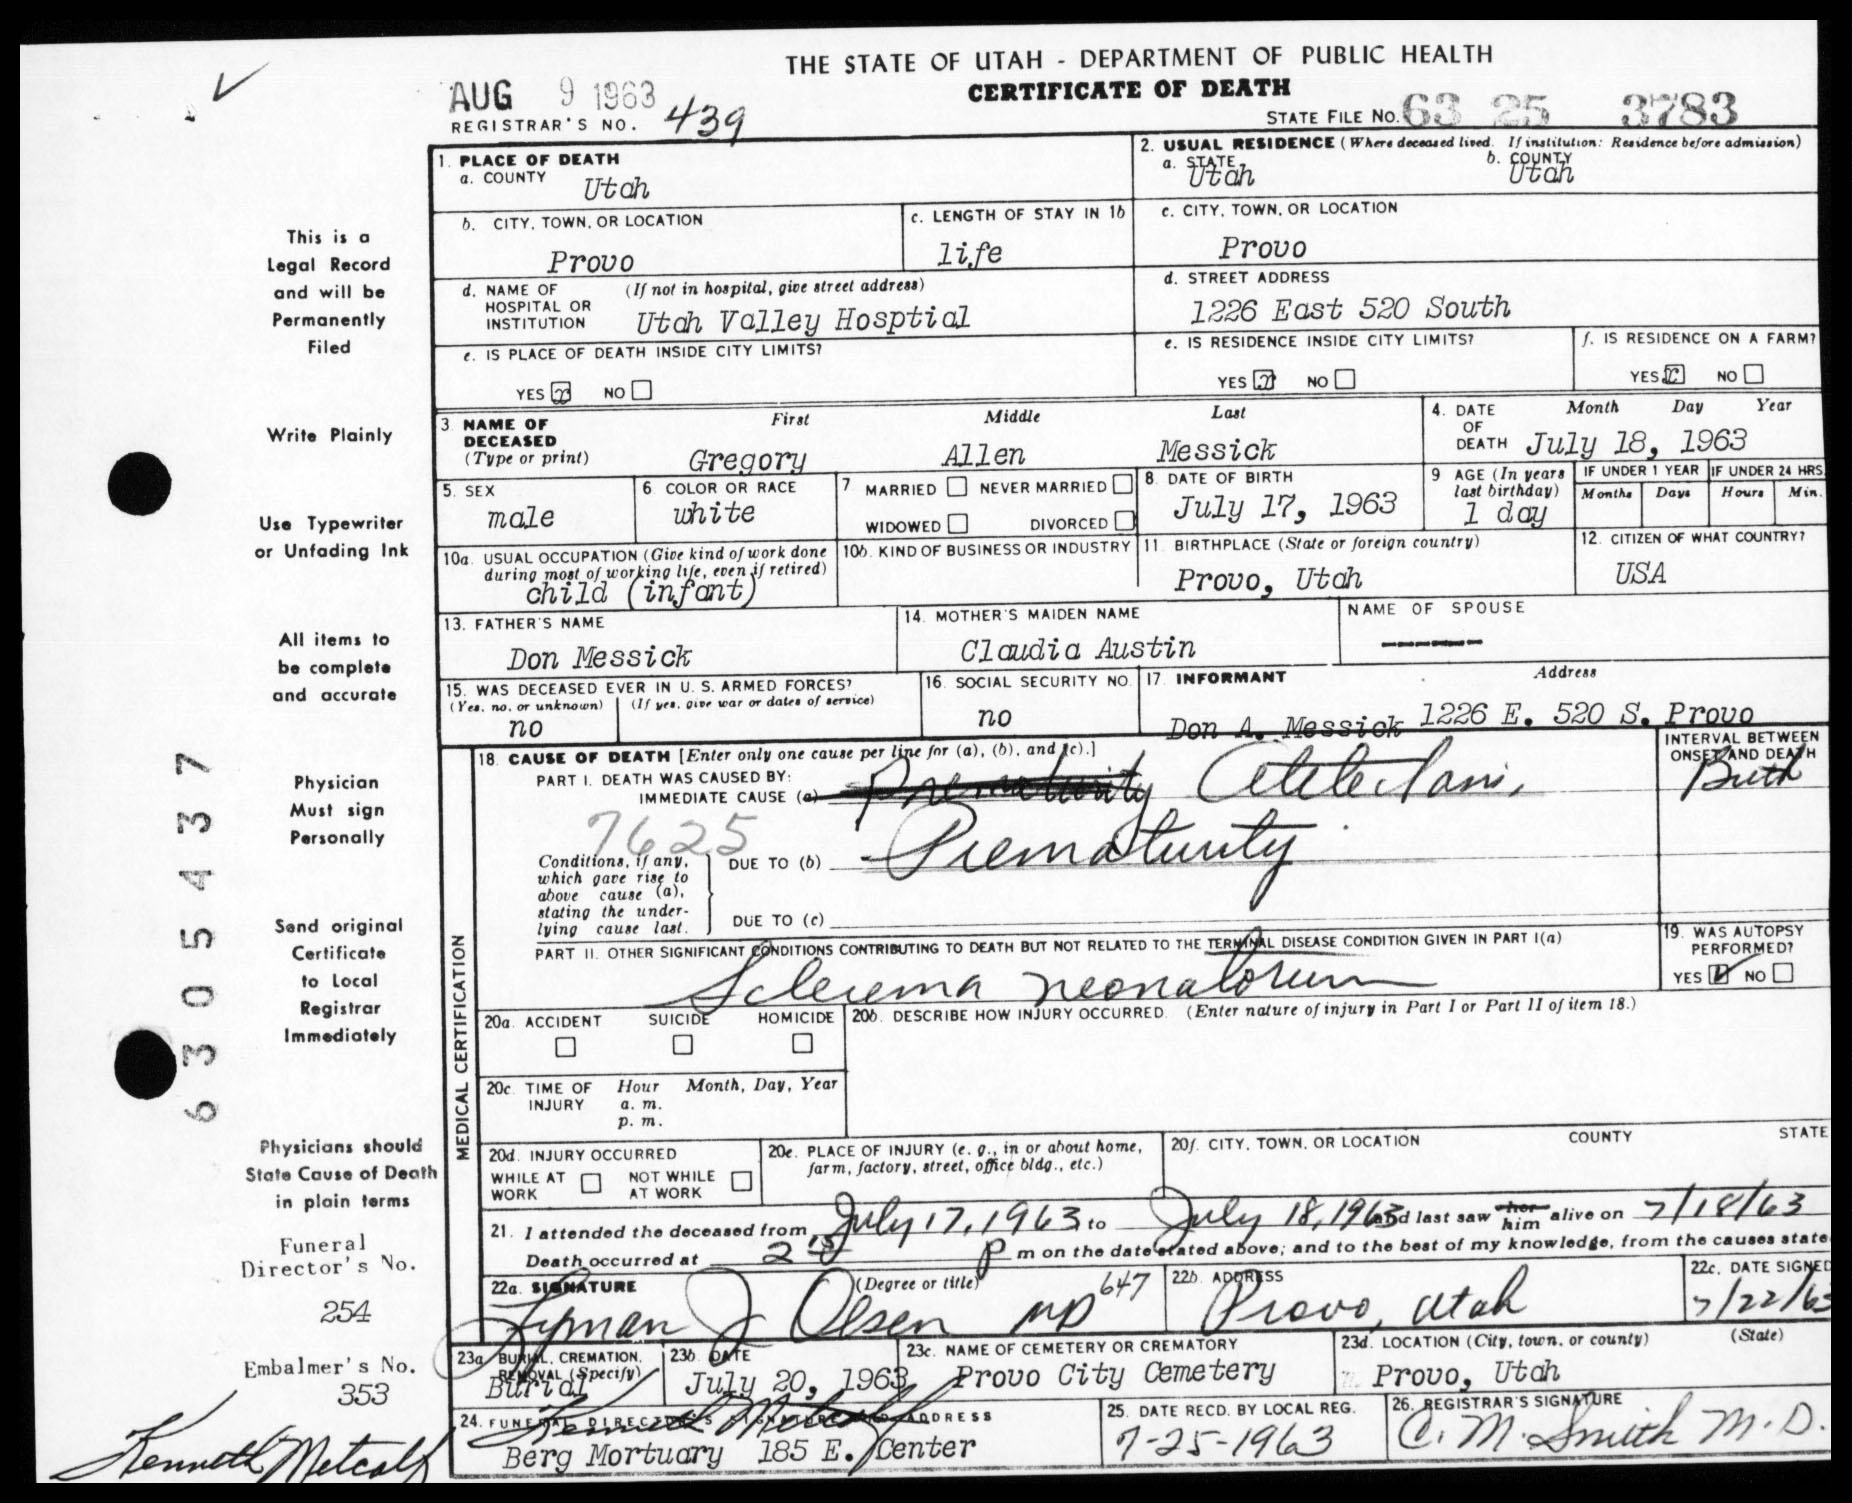 THE STATE OF UTAH - DEPARTMENT OF PUBLIC HEALTH
CERTIFICATE OF DEATH
AUG 9 1963
REGISTRAR'S NO. 439
STATE FILE NO. 63 25 3783
1. PLACE OF DEATH
a. COUNTY Utah
2. USUAL RESIDENCE (Where deceased lived. If institution: Residence before admission)
a. STATE Utah b. COUNTY Utah
b. CITY, TOWN, OR LOCATION Provo
c. LENGTH OF STAY IN 1b life
c. CITY, TOWN, OR LOCATION Provo
d. NAME OF HOSPITAL OR INSTITUTION (If not in hospital, give street address) Utah Valley Hosptial
d. STREET ADDRESS 1226 East 520 South
e. IS PLACE OF DEATH INSIDE CITY LIMITS? YES x NO
e. IS RESIDENCE INSIDE CITY LIMITS? YES x NO
f. IS RESIDENCE ON A FARM? YES x NO
3. NAME OF DECEASED (Type or print) First Middle Last
Gregory Allen Messick
4. DATE OF DEATH Month Day Year
July 18, 1963
5. SEX male
6. COLOR OR RACE white
7 MARRIED NEVER MARRIED
WIDOWED DIVORCED
8. DATE OF BIRTH July 17, 1963
9 AGE (In years last birthday) 1 day
IF UNDER 1 YEAR Months Days
IF UNDER 24 HRS. Hours Min.
10a. USUAL OCCUPATION (Give kind of work done during most of working life, even if retired)
child (infant)
10b. KIND OF BUSINESS OR INDUSTRY
11. BIRTHPLACE (State or foreign country) Provo, Utah
12. CITIZEN OF WHAT COUNTRY? USA
13. FATHER'S NAME Don Messick
14. MOTHER'S MAIDEN NAME Claudia Austin
NAME OF SPOUSE -----
15. WAS DECEASED EVER IN U. S. ARMED FORCES?
(Yes, no, or unknown) (If yes, give war or dates of service)
no
16. SOCIAL SECURITY NO. no
17. INFORMANT Address
Don A. Messick 1226 E. 520 S. Provo
MEDICAL CERTIFICATION
18. CAUSE OF DEATH [Enter only one cause per line for (a), (b), and (c).]
INTERVAL BETWEEN ONSET AND DEATH
Birth
PART I. DEATH WAS CAUSED BY:
IMMEDIATE CAUSE (a) Prematurity Atelectasis,
7625
Conditions, if any, which gave rise to above cause (a), stating the underlying cause last.
DUE TO (b) Prematurity
DUE TO (c)
PART II. OTHER SIGNIFICANT CONDITIONS CONTRIBUTING TO DEATH BUT NOT RELATED TO THE TERMINAL DISEASE CONDITION GIVEN IN PART I(a)
Sclerema neonatorum
19. WAS AUTOPSY PERFORMED?
YES ✓ NO
20a. ACCIDENT SUICIDE HOMICIDE
20b. DESCRIBE HOW INJURY OCCURRED. (Enter nature of injury in Part I or Part II of item 18.)
20c. TIME OF INJURY Hour Month, Day, Year
a. m.
p. m.
20d. INJURY OCCURRED
WHILE AT WORK NOT WHILE AT WORK
20e. PLACE OF INJURY (e. g., in or about home, farm, factory, street, office bldg., etc.)
20f. CITY, TOWN, OR LOCATION COUNTY STATE
21. I attended the deceased from July 17, 1963 to July 18, 1963 and last saw her him alive on 7/18/63
Death occurred at 2 15 p m on the date stated above; and to the best of my knowledge, from the causes state
22a. SIGNATURE (Degree or title)
Lyman J Olsen MD 647
22b. ADDRESS Provo, Utah
22c. DATE SIGNED 7/22/63
23a BURIAL, CREMATION, REMOVAL (Specify) Burial
23b. DATE July 20, 1963
23c. NAME OF CEMETERY OR CREMATORY Provo City Cemetery
23d. LOCATION (City, town, or county) (State)
Provo, Utah
24. FUNERAL DIRECTOR'S SIGNATURE AND ADDRESS
Kenneth Metcalf
Berg Mortuary 185 E. Center
25. DATE RECD. BY LOCAL REG. 7-25-1963
26. REGISTRAR'S SIGNATURE C. M. Smith M.D.
This is a
Legal Record
and will be
Permanently
Filed
Write Plainly
Use Typewriter
or Unfading Ink
All items to
be complete
and accurate
Physician
Must sign
Personally
Send original
Certificate
to Local
Registrar
Immediately
Physicians should
State Cause of Death
in plain terms
Funeral
Director's No.
254
Embalmer's No.
353
Kenneth Metcalf
6305437